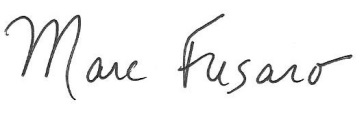 Marc Fusaro